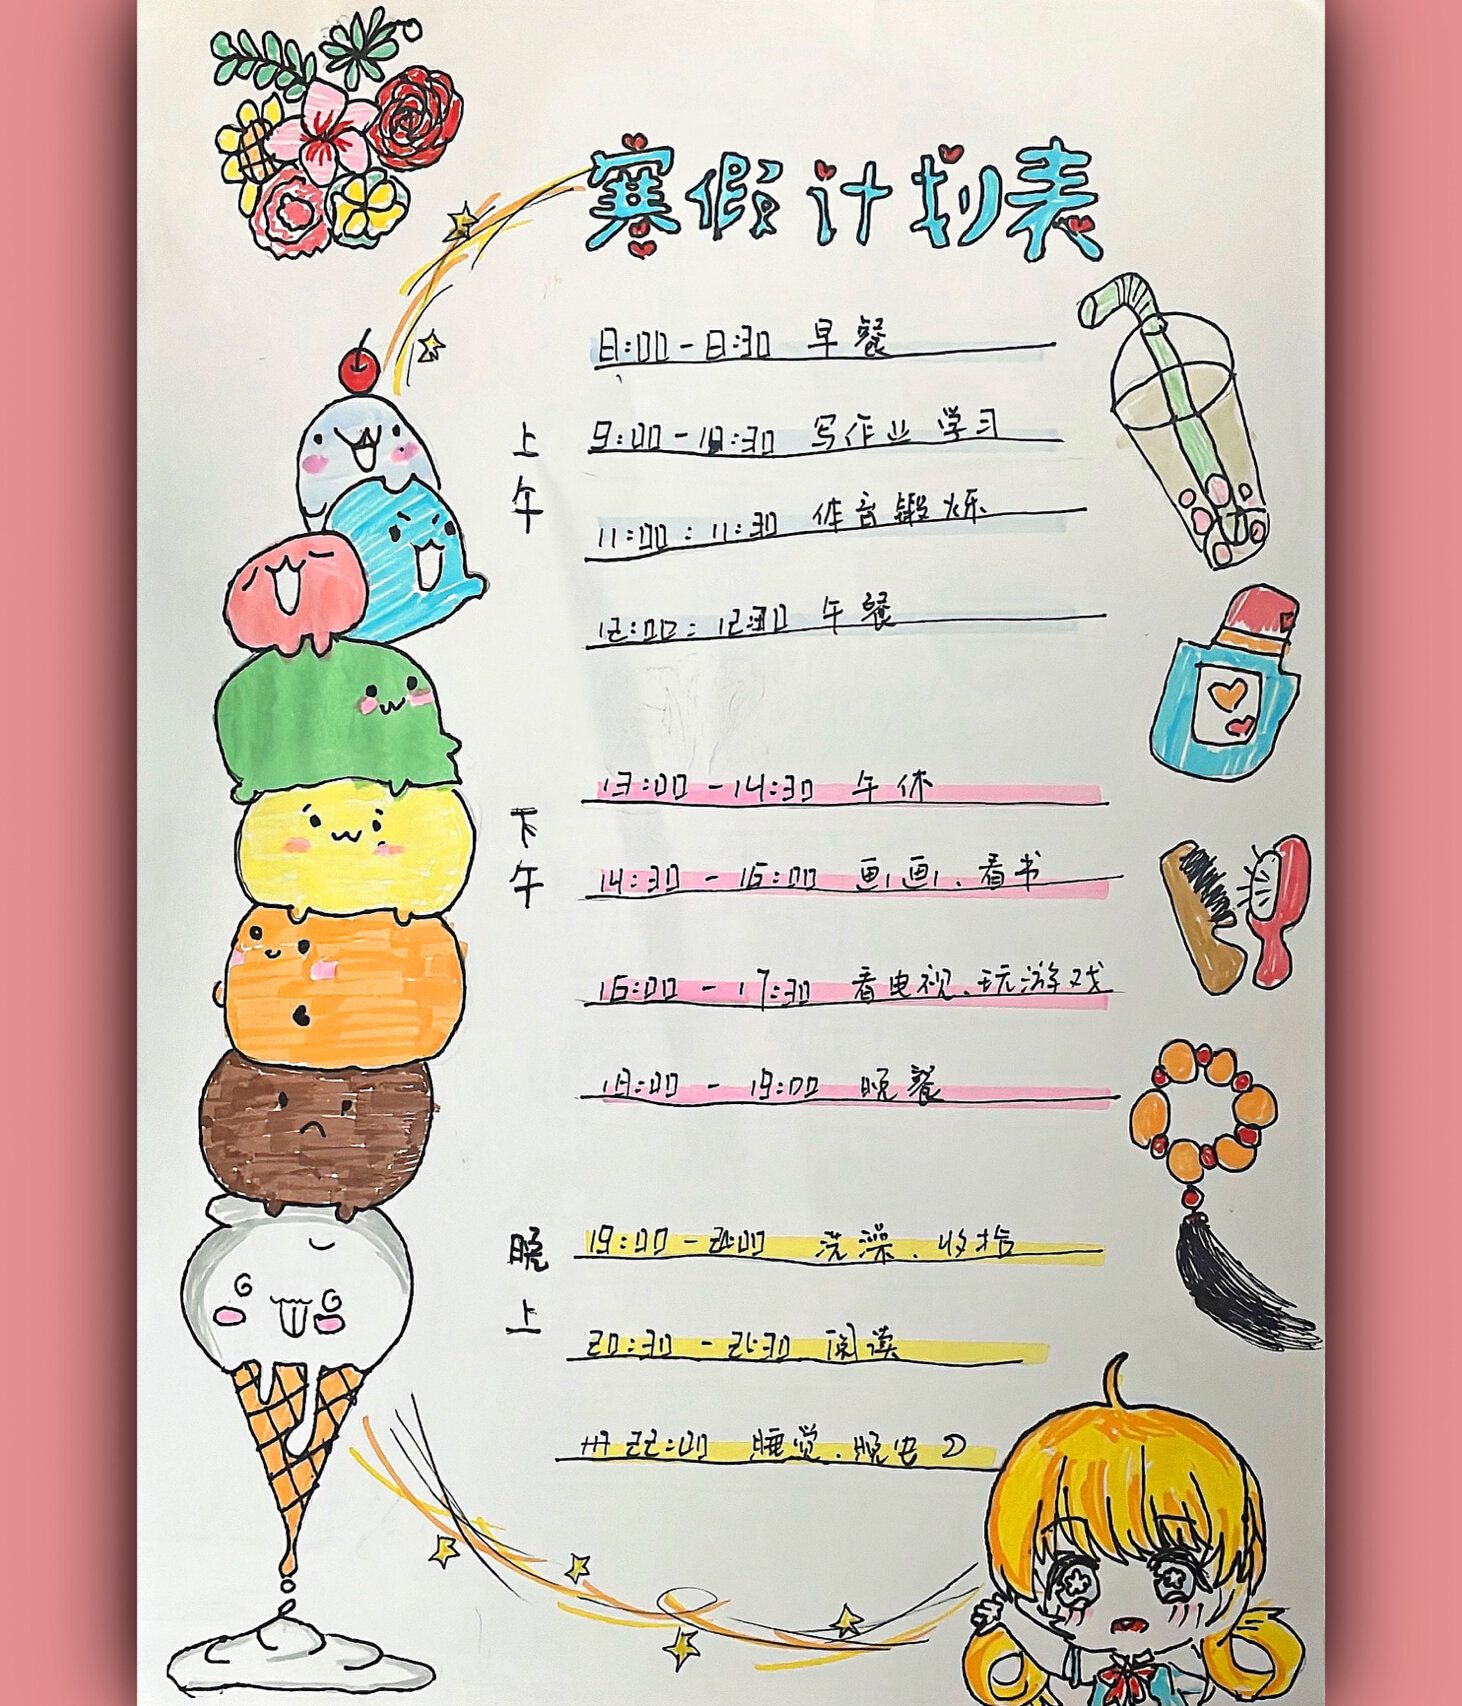 寒假计划表
上午
8:00-8:30 早餐
9:00-10:30 写作业 学习
11:00:11:30 体育锻炼
12:00:12:30 午餐
下午
13:00-14:30 午休
14:30-16:00 画画、看书
16:00-17:30 看电视、玩游戏
18:00-19:00 晚餐
晚上
19:00-20:00 洗澡、收拾
20:30-21:30 阅读
22:00 睡觉、晚安